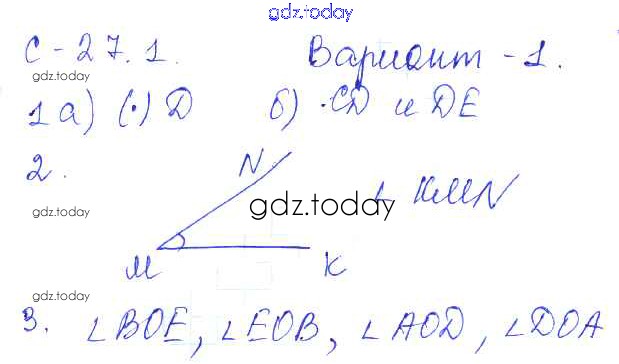 gdz.today
С-27.1. Вариант-1.
gdz.today
1 а) (·) D б) ·CD и DE
2.
N
gdz.today ∠ KMN
gdz.today
M K
gdz.today
3. ∠BOE, ∠EOB, ∠AOD, ∠DOA
gdz.today